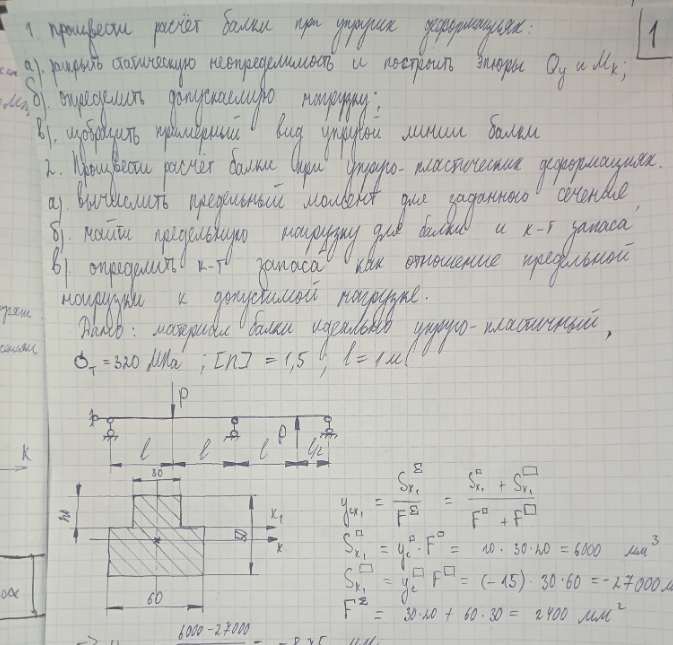 1
1. произвести расчёт балки при упругих деформациях:
а). раскрыть статическую неопределимость и построить эпюры Qy и Mк;
б). определить допускаемую нагрузку;
в). изобразить примерный вид упругой линии балки
2. Произвести расчёт балки при упруго-пластических деформациях.
а). вычислить предельный момент для заданного сечения,
б). найти предельную нагрузку для балки и к-т запаса
в). определить к-т запаса как отношение предельной
нагрузки к допустимой нагрузке.
Дано: материал балки идеально упруго-пластичный,
σт = 320 МПа ; [n] = 1,5 ; l = 1м
P
P
l l l l/2
30
20
50
К1
К
60
yсх1 = Sx1^Σ / F^Σ = (Sx1^□ + Sx1^▭) / (F^□ + F^▭)
Sx1^□ = yc^□ · F^□ = 10 · 30 · 20 = 6000 мм³
Sx1^▭ = yc^▭ F^▭ = (-15) · 30 · 60 = -27000 м
F^Σ = 30·20 + 60·30 = 2400 мм²
6000 - 27000
К